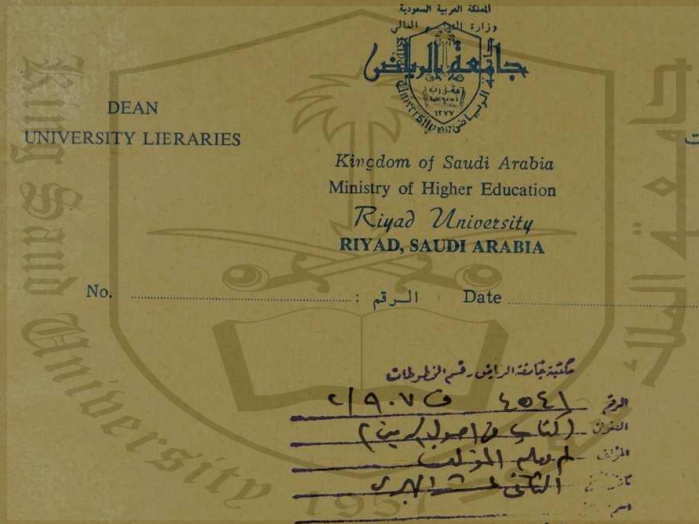 المملكة العربية السعودية
وزارة التعليم العالي
جامعة الرياض
١٣٧٧
DEAN
UNIVERSITY LIERARIES
Kingdom of Saudi Arabia
Ministry of Higher Education
Riyad University
RIYAD, SAUDI ARABIA
No. الرقم : Date
مكتبة جامعة الرياض - قسم المخطوطات
الرقم ٤٥٤١ ف ٢/٩٠٧
العنوان (كتاب في اصول الدين)
المؤلف لم يعلم المؤلف
الثاني عشر الهجري
King Saud University
1957